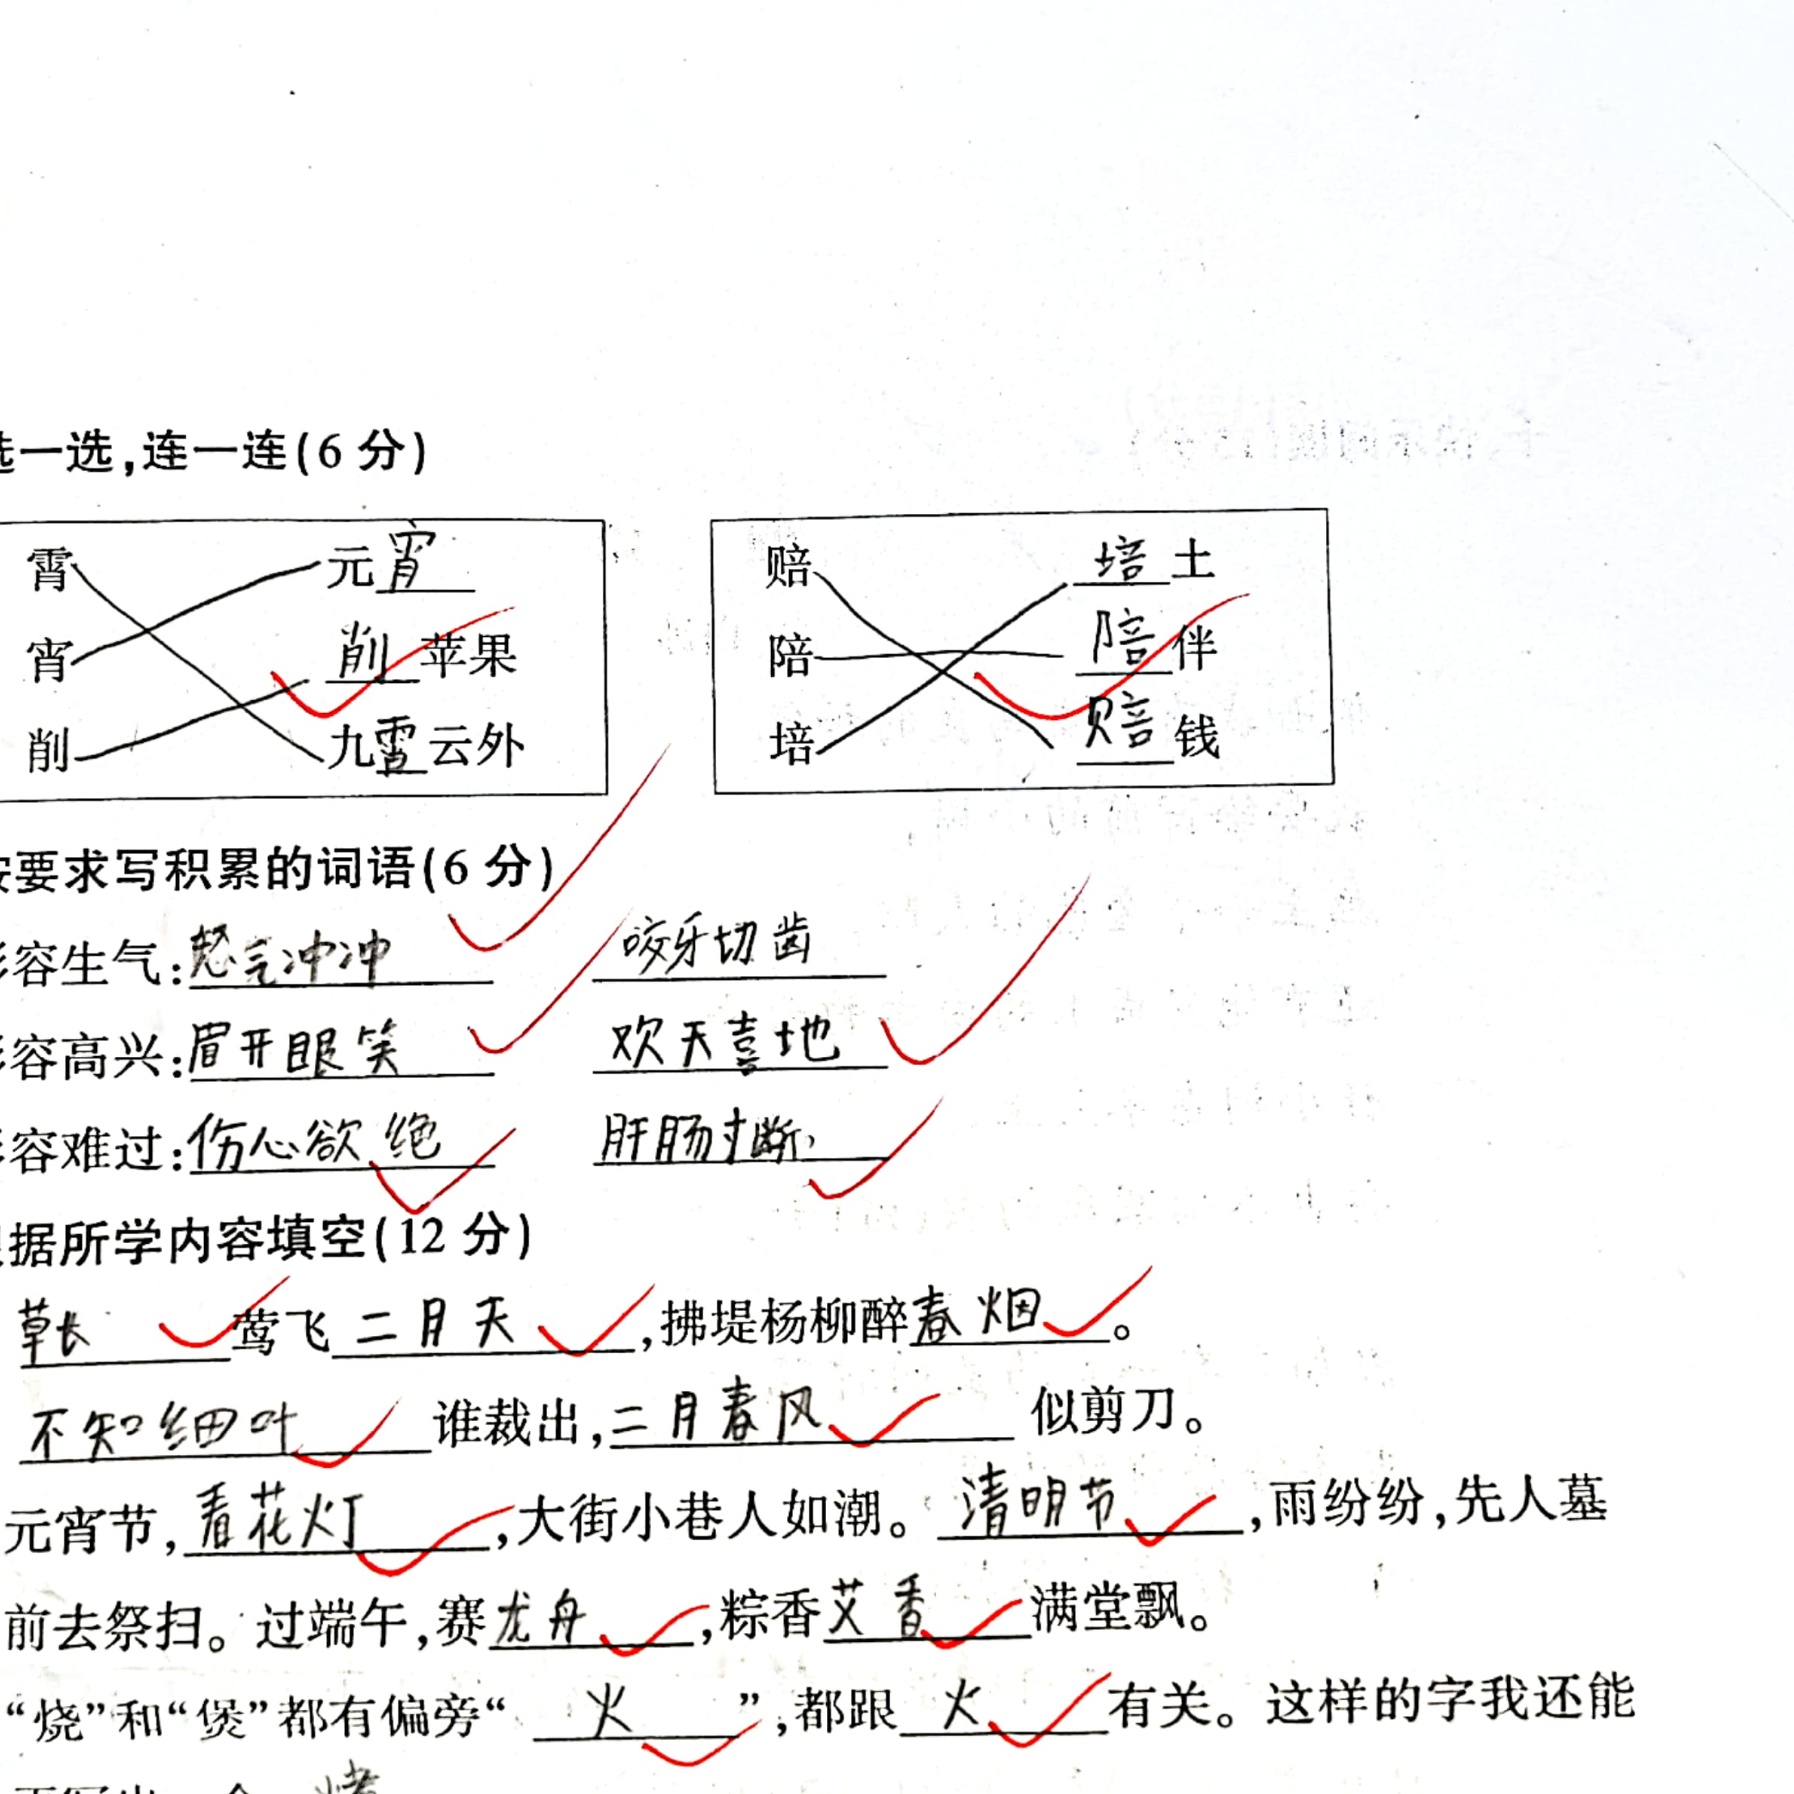 选一选,连一连(6 分)
霄 元宵 赔 培土
宵 削苹果 陪 陪伴
削 九霄云外 培 赔钱
按要求写积累的词语(6 分)
形容生气:怒气冲冲 咬牙切齿
形容高兴:眉开眼笑 欢天喜地
形容难过:伤心欲绝 肝肠寸断
根据所学内容填空(12 分)
草长莺飞二月天,拂堤杨柳醉春烟。
不知细叶谁裁出,二月春风似剪刀。
元宵节,看花灯,大街小巷人如潮。清明节,雨纷纷,先人墓
前去祭扫。过端午,赛龙舟,粽香艾香满堂飘。
“烧”和“煲”都有偏旁“火”,都跟火有关。这样的字我还能
烤